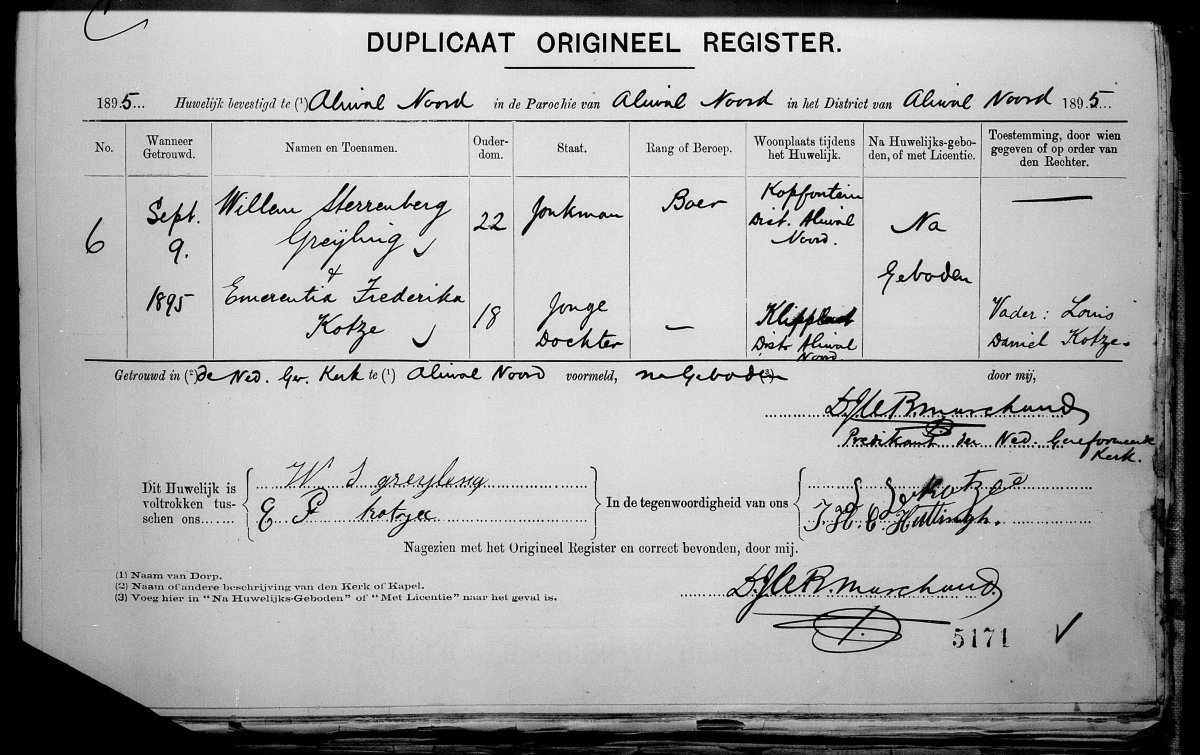 DUPLICAAT ORIGINEEL REGISTER.
1895... Huwelijk bevestigd te (1) Aliwal Noord in de Parochie van Aliwal Noord in het District van Aliwal Noord 1895...
No. Wanneer Getrouwd. Namen en Toenamen. Ouderdom. Staat. Rang of Beroep. Woonplaats tijdens het Huwelijk. Na Huwelijks-geboden, of met Licentie. Toestemming, door wien gegeven of op order van den Rechter.
6 Sept. 9. 1895
Willem Sterrenberg
Greijling
22 Jonkman Boer
Kopfontein
Dist. Aliwal
Noord.
Na
Geboden
&
Emerentia Frederika
Kotze
18 Jonge
Dochter
—
Distr Aliwal
Noord
Vader: Louis
Daniel Kotze.
Getrouwd in (2) de Ned. Ger. Kerk te (1) Aliwal Noord voormeld, na Geboden (3) door mij,
D. J. le R. Marchand
Predikant der Ned. Gereformeerde
Kerk.
Dit Huwelijk is
voltrokken tus-
schen ons......
W S greyling
E F kotze
In de tegenwoordigheid van ons
Kotzee
J. H. C. Hattingh.
Nagezien met het Origineel Register en correct bevonden, door mij.
(1) Naam van Dorp.
(2) Naam of andere beschrijving van den Kerk of Kapel.
(3) Voeg hier in "Na Huwelijks-Geboden" of "Met Licentie" naar het geval is.
D. J. le R. Marchand.
5171 ✓